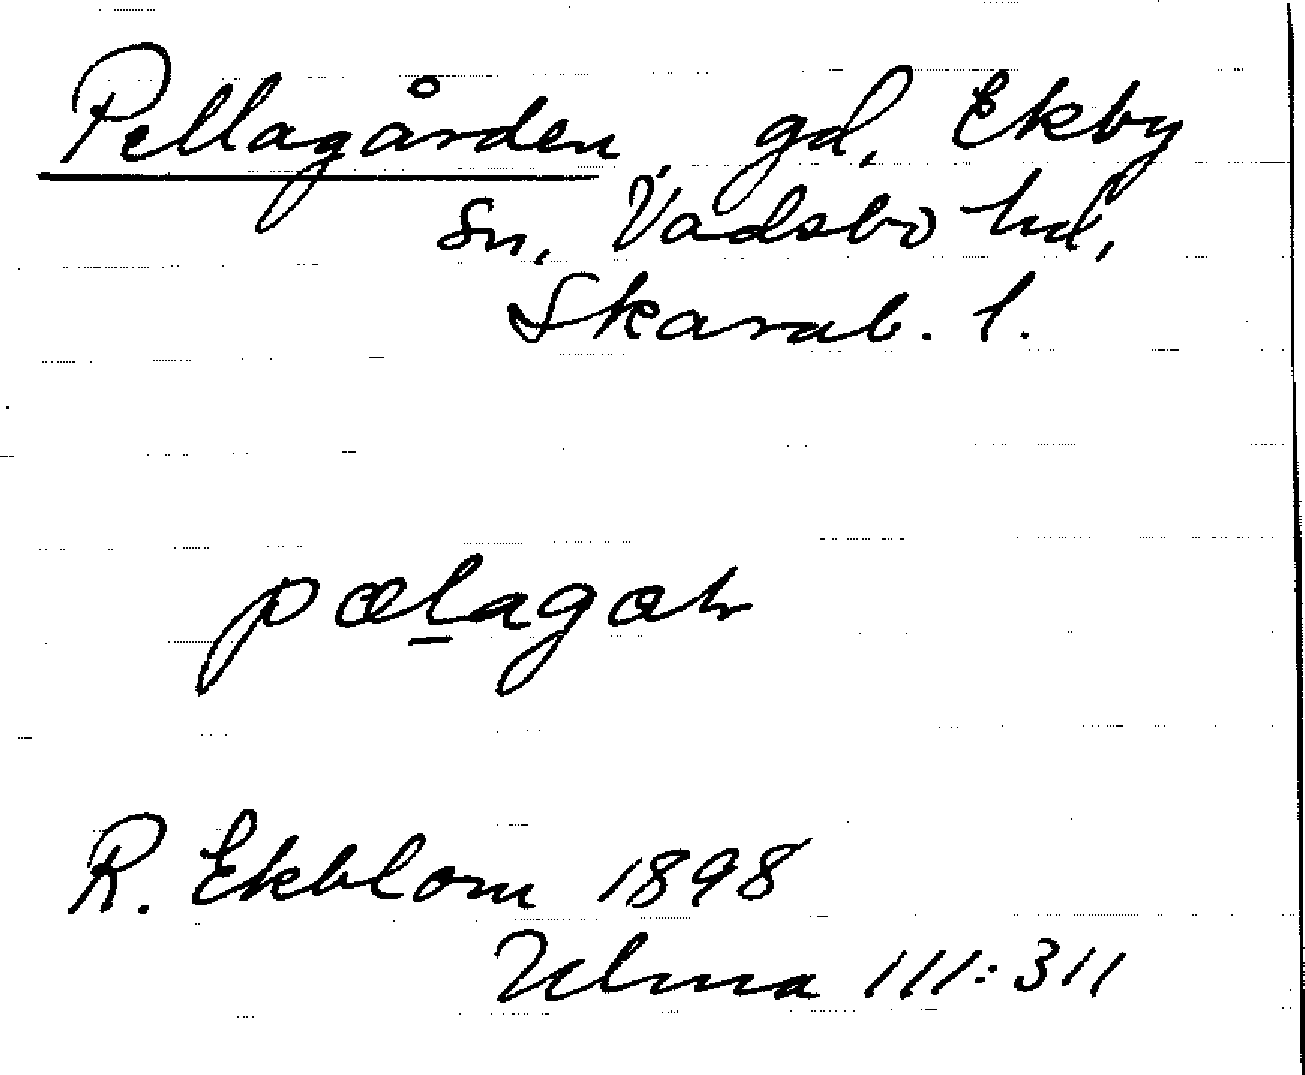 Pellagården, gd, Ekby
sn, Vadsbo hd,
Skarab. l.
pælagah
R. Ekblom 1898
Ulma 111:311